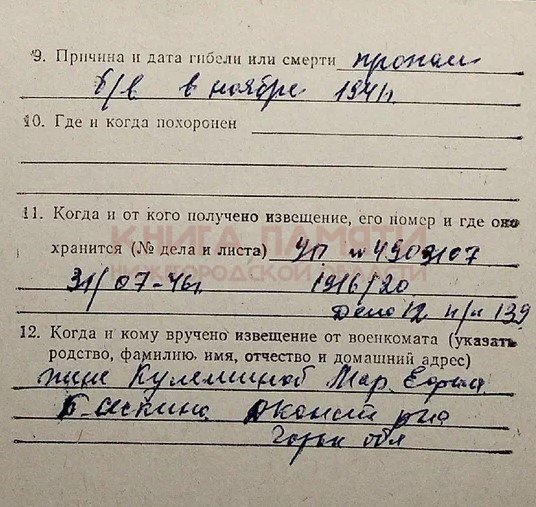 9. Причина и дата гибели или смерти пропал
б/в в ноябре 1941г.
10. Где и когда похоронен
11. Когда и от кого получено извещение, его номер и где оно
КНИГА ПАМЯТИ
хранится (№ дела и листа) УП №
НИЖЕГОРОДСКОЙ ОБЛАСТИ
31/07-46г 1916/20
Дело 12 п/н 139
12. Когда и кому вручено извещение от военкомата (указать
родство, фамилию, имя, отчество и домашний адрес)
жене Мар.
Горьк обл